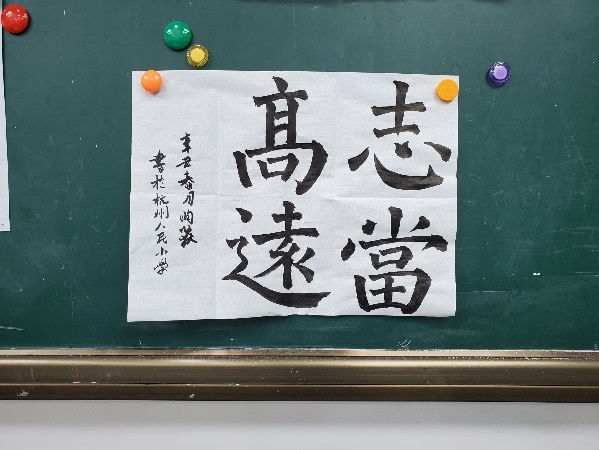 志當
高遠
辛丑春月
書於杭州人民小學